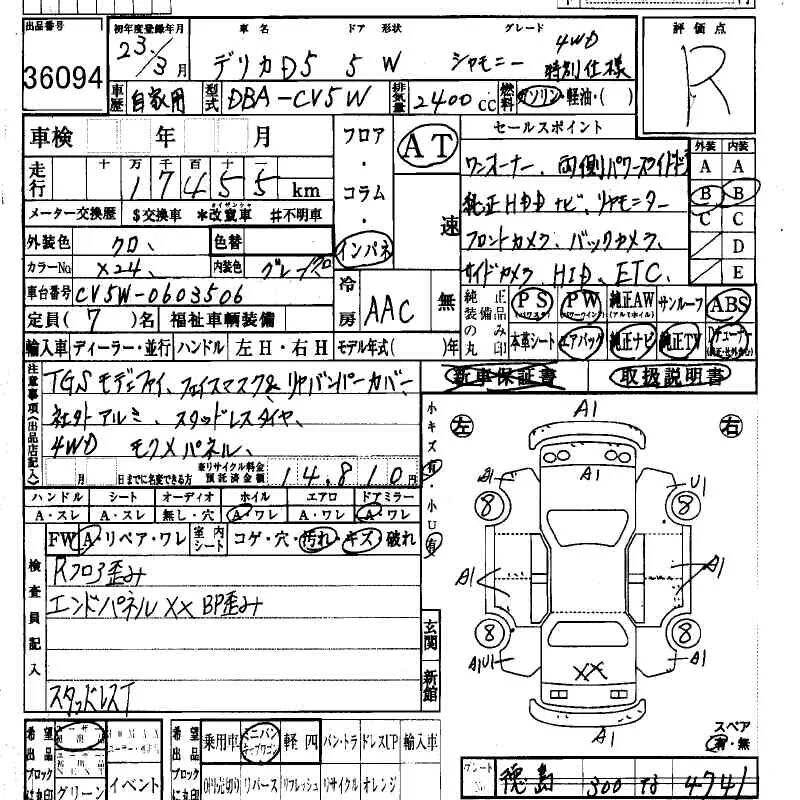 出品番号
36094
初年度登録年月
23.3月
車名 ドア 形状 グレード
デリカD5 5 W シャモニー 4WD 特別仕様
評価点
R
車歴 自家用 型式 DBA-CV5W 排気量 2400 CC 燃料 ガソリン・軽油・( )
車検 年 月
走行 十万千百十一
17455 km
メーター交換歴 $交換車 *改竄車 #不明車
外装色 クロ、 色替
カラーNo X24、 内装色 グレークロ
車台番号 CV5W-0603506
定員( 7 )名 福祉車輌装備
フロア・コラム・インパネ
AT
速
冷房 AAC 無
セールスポイント
ワンオーナー、両側パワースライドドア
純正HDDナビ、リヤモニター
フロントカメラ、バックカメラ、
サイドカメラ HID、ETC、
外装 内装
A A
B B
C C
D
E
純正装備品のみ丸印
PS (パワステ) PW (パワーウインド) 純正AW (アルミホイル) サンルーフ ABS
本革シート エアバッグ 純正ナビ 純正TV
輸入車 ディーラー・並行 ハンドル 左H・右H モデル年式( )年
新車保証書 取扱説明書
注意事項(出品店記入)
TGSモデファイ、フェイスマスク& リヤバンパーカバー
社外アルミ、スタッドレスタイヤ、
4WD モクメパネル、
月 日までに名変できる方 リサイクル料金預託済金額 14,810円
ハンドル シート オーディオ ホイル エアロ ドアミラー
A・スレ A・スレ 無し・穴 A・ワレ A・ワレ A・ワレ
FW A・リペア・ワレ 室内シート コゲ・穴・汚れ・キズ・破れ
検査員記入
Rフロア歪み
エンドパネルXX BP歪み
スタッドレスT
玄関
新館
小キズ有・小U有
左 右
A1
A1
A1 U1
8 8
A1 A1
8 8
A1U1 A1
XX
A1
スペア
有・無
希望出品ブロックに丸印
グリーン イベント
希望出品ブロックに丸印
乗用車 ミニバン 軽四 バン・トラ ドレスUP 輸入車
0円売切り リバース リフレッシュ リサイクル オレンジ
プレートNo 徳島 300 4741